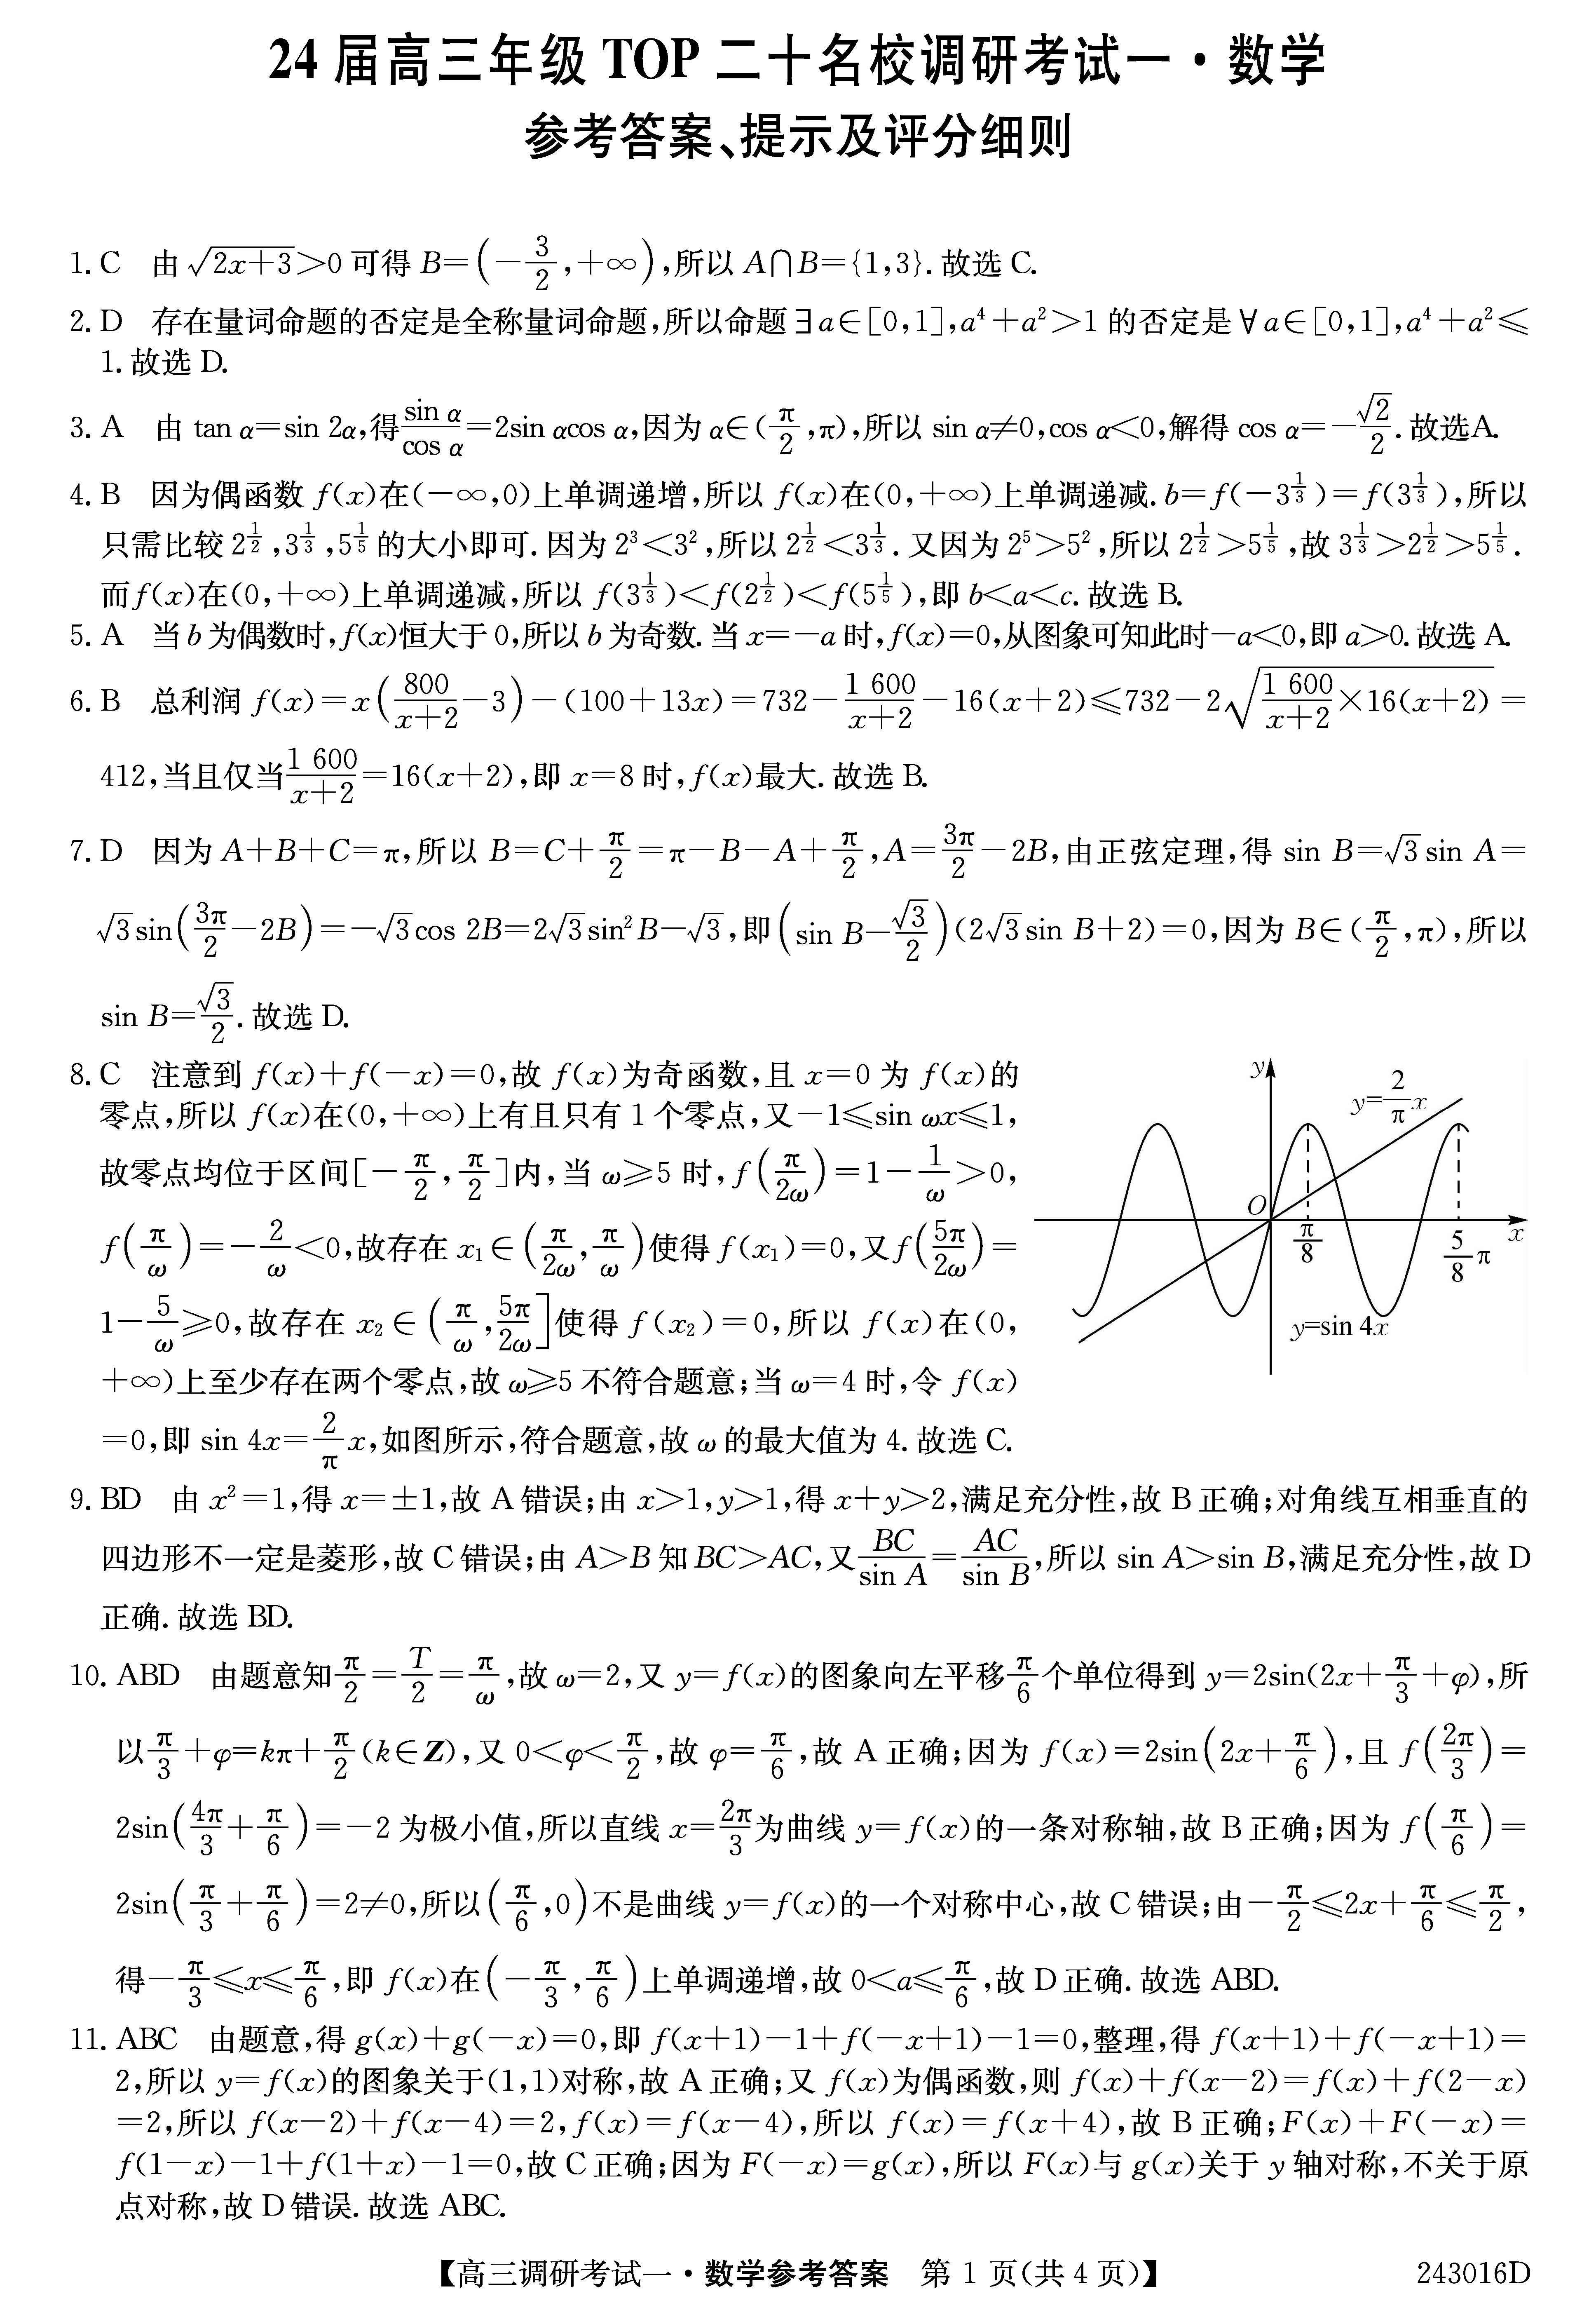 24 届高三年级 TOP 二十名校调研考试一·数学
参考答案、提示及评分细则
1. C 由 √(2x+3)>0 可得 B=(-3/2,+∞),所以 A∩B={1,3}.故选 C.
2. D 存在量词命题的否定是全称量词命题,所以命题∃a∈[0,1],a⁴+a²>1 的否定是∀a∈[0,1],a⁴+a²≤
1.故选 D.
3. A 由 tan α=sin 2α,得 sin α/cos α=2sin αcos α,因为 α∈(π/2,π),所以 sin α≠0,cos α<0,解得 cos α=-√2/2.故选A.
4. B 因为偶函数 f(x)在(-∞,0)上单调递增,所以 f(x)在(0,+∞)上单调递减. b=f(-3^(1/3))=f(3^(1/3)),所以
只需比较 2^(1/2),3^(1/3),5^(1/5) 的大小即可.因为 2³<3²,所以 2^(1/2)<3^(1/3).又因为 2⁵>5²,所以 2^(1/2)>5^(1/5),故 3^(1/3)>2^(1/2)>5^(1/5).
而 f(x)在(0,+∞)上单调递减,所以 f(3^(1/3))<f(2^(1/2))<f(5^(1/5)),即 b<a<c.故选 B.
5. A 当 b 为偶数时,f(x)恒大于 0,所以 b 为奇数.当 x=-a 时,f(x)=0,从图象可知此时-a<0,即 a>0.故选 A.
6. B 总利润 f(x)=x(800/(x+2)-3)-(100+13x)=732-1 600/(x+2)-16(x+2)≤732-2√(1 600/(x+2)×16(x+2))=
412,当且仅当 1 600/(x+2)=16(x+2),即 x=8 时,f(x)最大.故选 B.
7. D 因为 A+B+C=π,所以 B=C+π/2=π-B-A+π/2,A=3π/2-2B,由正弦定理,得 sin B=√3 sin A=
√3 sin(3π/2-2B)=-√3 cos 2B=2√3 sin²B-√3,即(sin B-√3/2)(2√3 sin B+2)=0,因为 B∈(π/2,π),所以
sin B=√3/2.故选 D.
8. C 注意到 f(x)+f(-x)=0,故 f(x)为奇函数,且 x=0 为 f(x)的
零点,所以 f(x)在(0,+∞)上有且只有 1 个零点,又-1≤sin ωx≤1,
故零点均位于区间[-π/2,π/2]内,当 ω≥5 时,f(π/2ω)=1-1/ω>0,
f(π/ω)=-2/ω<0,故存在 x₁∈(π/2ω,π/ω)使得 f(x₁)=0,又 f(5π/2ω)=
1-5/ω≥0,故存在 x₂∈(π/ω,5π/2ω]使得 f(x₂)=0,所以 f(x)在(0,
+∞)上至少存在两个零点,故 ω≥5 不符合题意;当 ω=4 时,令 f(x)
=0,即 sin 4x=2/π x,如图所示,符合题意,故 ω 的最大值为 4.故选 C.
y
y=2/π x
O
π/8
5/8 π
x
y=sin 4x
9. BD 由 x²=1,得 x=±1,故 A 错误;由 x>1,y>1,得 x+y>2,满足充分性,故 B 正确;对角线互相垂直的
四边形不一定是菱形,故 C 错误;由 A>B 知 BC>AC,又 BC/sin A=AC/sin B,所以 sin A>sin B,满足充分性,故 D
正确.故选 BD.
10. ABD 由题意知 π/2=T/2=π/ω,故 ω=2,又 y=f(x)的图象向左平移 π/6 个单位得到 y=2sin(2x+π/3+φ),所
以 π/3+φ=kπ+π/2(k∈Z),又 0<φ<π/2,故 φ=π/6,故 A 正确;因为 f(x)=2sin(2x+π/6),且 f(2π/3)=
2sin(4π/3+π/6)=-2 为极小值,所以直线 x=2π/3 为曲线 y=f(x)的一条对称轴,故 B 正确;因为 f(π/6)=
2sin(π/3+π/6)=2≠0,所以(π/6,0)不是曲线 y=f(x)的一个对称中心,故 C 错误;由-π/2≤2x+π/6≤π/2,
得-π/3≤x≤π/6,即 f(x)在(-π/3,π/6)上单调递增,故 0<a≤π/6,故 D 正确.故选 ABD.
11. ABC 由题意,得 g(x)+g(-x)=0,即 f(x+1)-1+f(-x+1)-1=0,整理,得 f(x+1)+f(-x+1)=
2,所以 y=f(x)的图象关于(1,1)对称,故 A 正确;又 f(x)为偶函数,则 f(x)+f(x-2)=f(x)+f(2-x)
=2,所以 f(x-2)+f(x-4)=2,f(x)=f(x-4),所以 f(x)=f(x+4),故 B 正确;F(x)+F(-x)=
f(1-x)-1+f(1+x)-1=0,故 C 正确;因为 F(-x)=g(x),所以 F(x)与 g(x)关于 y 轴对称,不关于原
点对称,故 D 错误.故选 ABC.
【高三调研考试一·数学参考答案 第 1 页(共 4 页)】 243016D